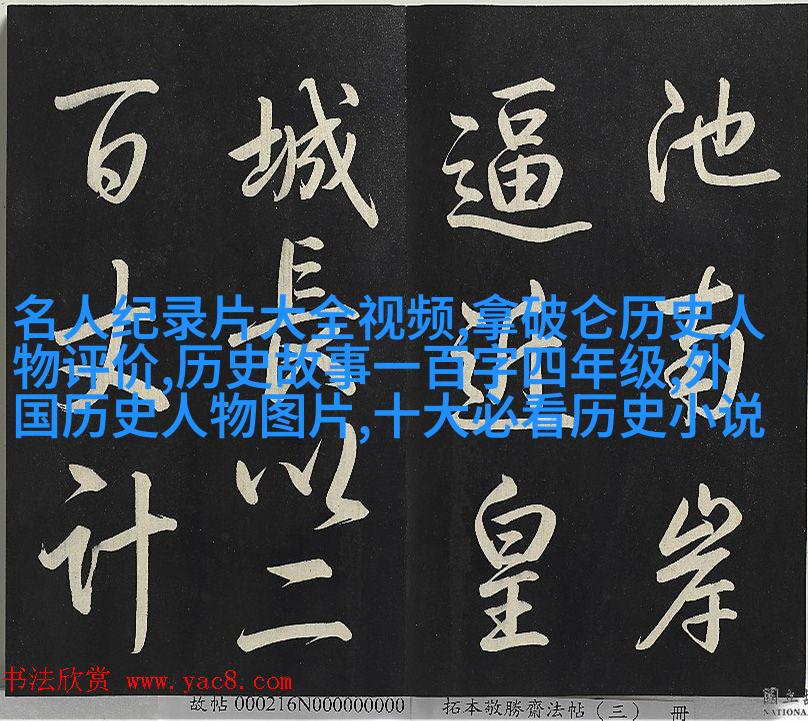 池南岸
逼進皇
城長以二
百丈計
名人纪录片大全视频,拿破仑历史人
物评价,历史故事一百字四年级,外
国历史人物图片,十大必看历史小说
书法欣赏 www.yac8.com
故帖 000216N000000000 拓本敬勝齋法帖（三） 冊
國立
NATIONA